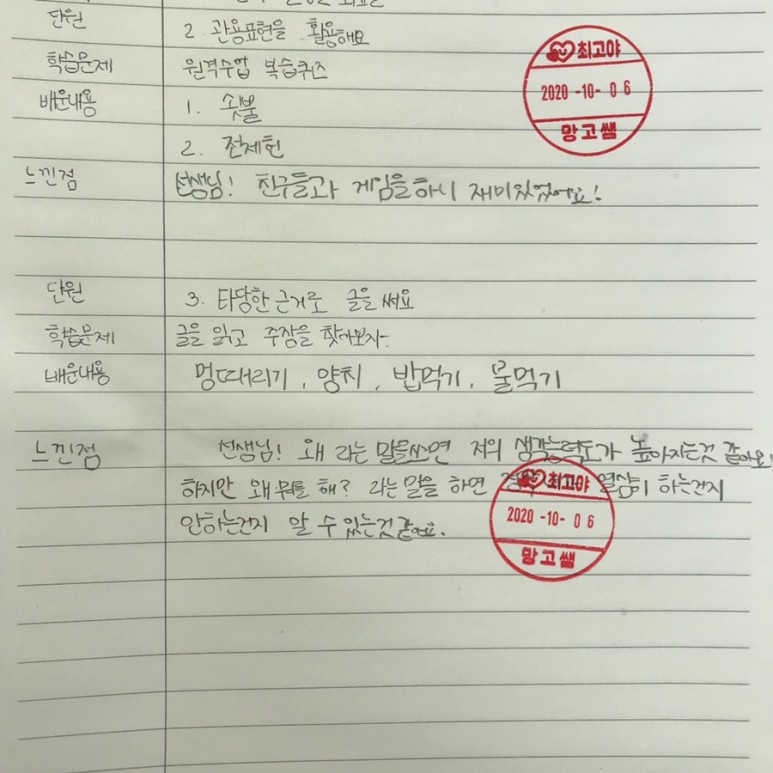 단원 2. 관용표현을 활용해요
학습문제 원격수업 복습퀴즈
배운내용 1. 숏불
2. 전제헌
느낀점 선생님! 친구들과 게임을하니 재미있었어요!
최고야
2020-10-06
망고쌤
단원 3. 타당한 근거로 글을 써요
학습문제 글을 읽고 주장을 찾아보자.
배운내용 멍때리기, 양치, 밥먹기, 물먹기
느낀점 선생님! 왜 라는 말을쓰면 저의 생각능력도가 높아지는것 같아요!
하지만 왜 뭐를 해? 라는 말을 하면 열심히 하는건지
안하는건지 알 수 있는것같아요.
최고야
2020-10-06
망고쌤